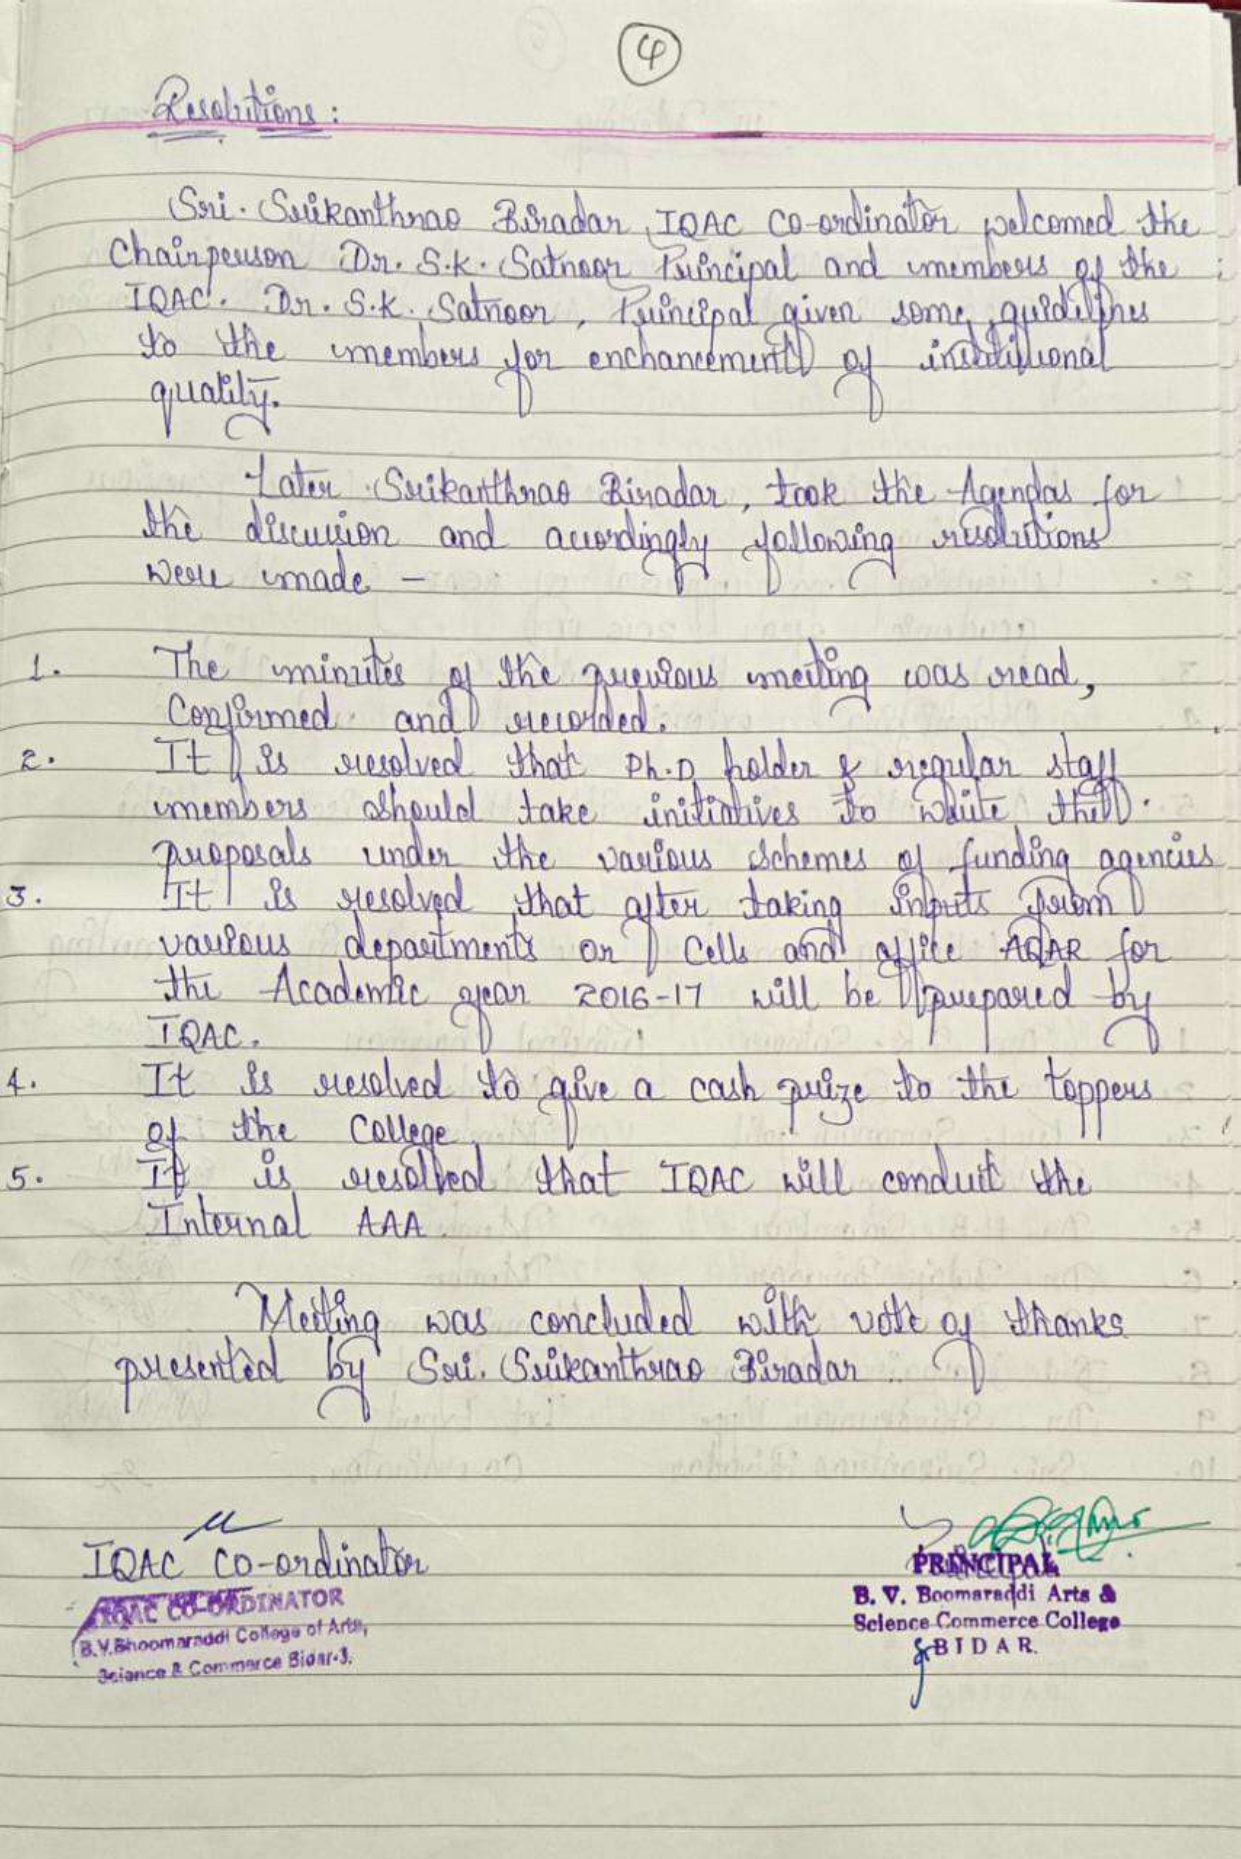 4
Resolutions :
Sri. Srikanthrao Biradar, IQAC Co-ordinator welcomed the
Chairperson Dr. S.K. Satnoor Principal and members of the
IQAC. Dr. S.K. Satnoor, Principal given some guidelines
to the members for enchancement of institutional
quality.
Later Srikanthrao Biradar, took the Agendas for
the discussion and accordingly following resolutions
were made –
1. The minutes of the previous meeting was read,
Confirmed and recorded.
2. It is resolved that Ph.D holder & regular staff
members should take initiatives to write their
proposals under the various schemes of funding agencies
3. It is resolved that after taking inputs from
various departments or Cells and office AQAR for
the Academic year 2016-17 will be prepared by
IQAC.
4. It is resolved to give a cash prize to the toppers
of the College.
5. It is resolved that IQAC will conduct the
Internal AAA
Meeting was concluded with vote of thanks
presented by Sri. Srikanthrao Biradar
IQAC Co-ordinator
IQAC CO-ORDINATOR
B.V.Bhoomaraddi College of Arts,
Science & Commerce Bidar-3.
PRINCIPAL
B. V. Boomaraddi Arts &
Science Commerce College
BIDAR.